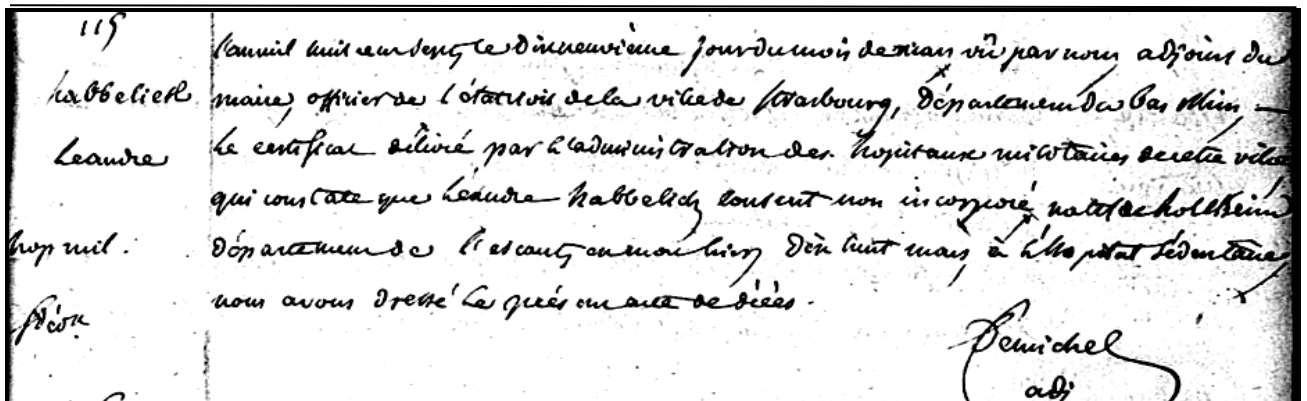 115
habbelich
Léandre
hop mil.
l'an mil huit cent sept le dixneuvième jour du mois de mars vû par nous adjoint du
maire, officier de l'état civil de la ville de Strasbourg, Département du Bas Rhin —
Le certificat délivré par l'administration des hopitaux militaires de cette ville
qui constate que Léandre habbelich conscrit non incorporé, natif de
Département de l'escaut, est mort hier Dix huit mars à l'hopital Sédentaire,
nous avons dressé le présent acte de décès.
Demichel
adj